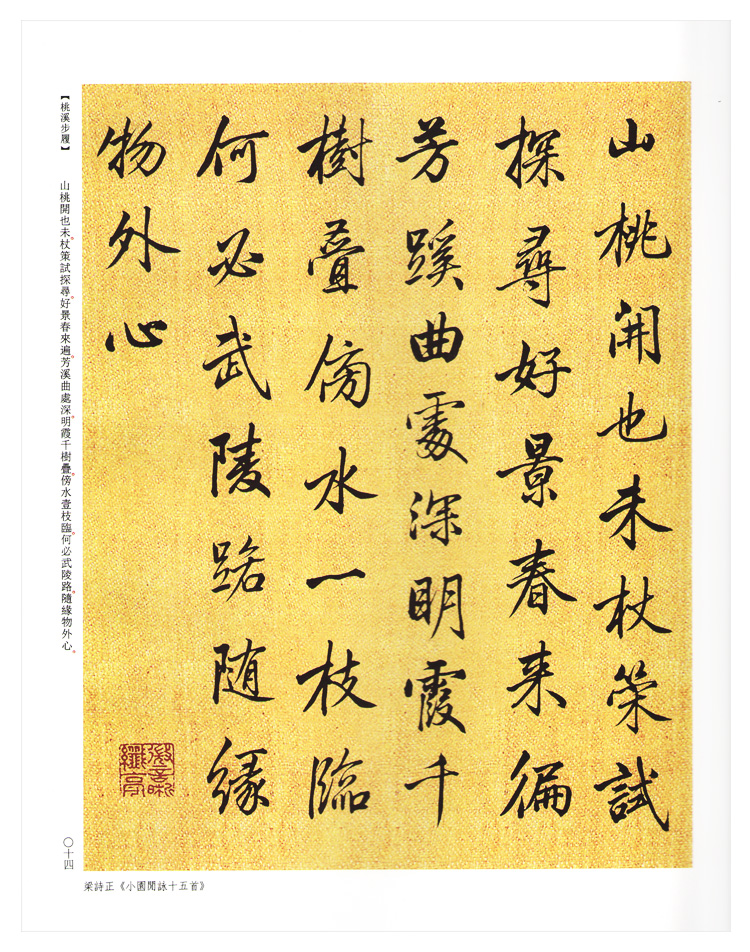 山桃開也未杖策試
探尋好景春来徧
芳蹊曲處深明霞千
樹疊傍水一枝臨
何必武陵路随緣
物外心
【桃溪步履】 山桃開也未。杖策試探尋。好景春來遍。芳溪曲處深。明霞千樹疊。傍水壹枝臨。何必武陵路。隨緣物外心。
〇十四
梁詩正《小園閒詠十五首》